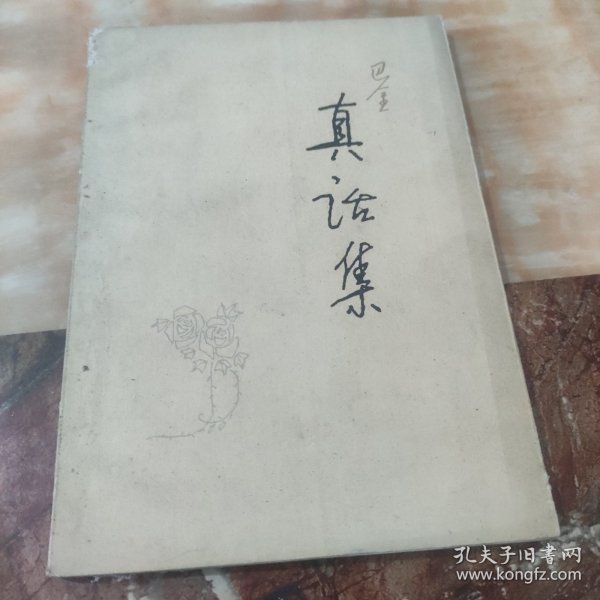 巴金
真话集
孔夫子旧書网
www.kongfz.com